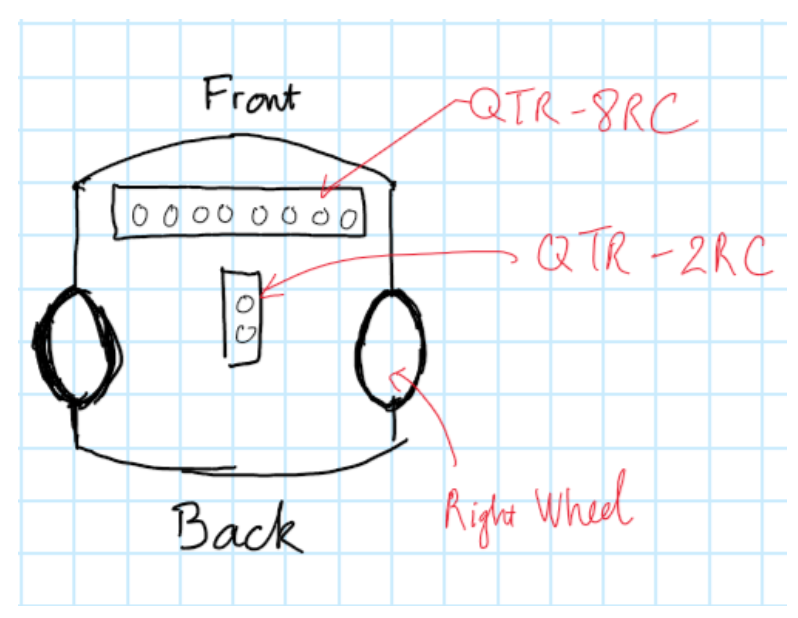 Front
QTR-8RC
QTR-2RC
Right Wheel
Back